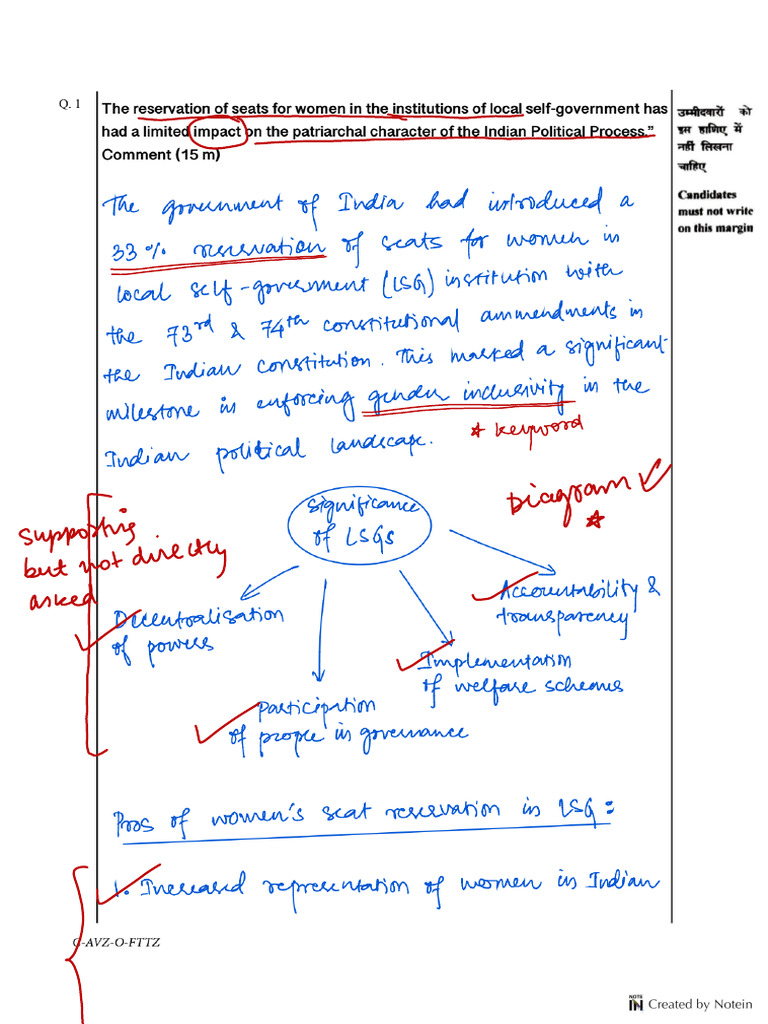 Q. 1
The reservation of seats for women in the institutions of local self-government has
had a limited impact on the patriarchal character of the Indian Political Process."
Comment (15 m)
उम्मीदवारों को
इस हाशिए में
नहीं लिखना
चाहिए
Candidates
must not write
on this margin
The government of India had introduced a
33% reservation of seats for women in
local self-government (LSG) institution with
the 73rd & 74th constitutional ammendments in
the Indian constitution. This marked a significant
milestone in enforcing gender inclusivity in the
Indian political landscape.
* keyword
Diagram
*
supporting
but not directly
asked
Significance
of LSGs
Decentralisation
of powers
Participation
of people in governance
Implementation
of welfare schemes
Accountability &
transparency
Pros of women's seat reservation in LSG:
1. Increased representation of women in Indian
C-AVZ-O-FTTZ
NOTE
IN Created by Notein